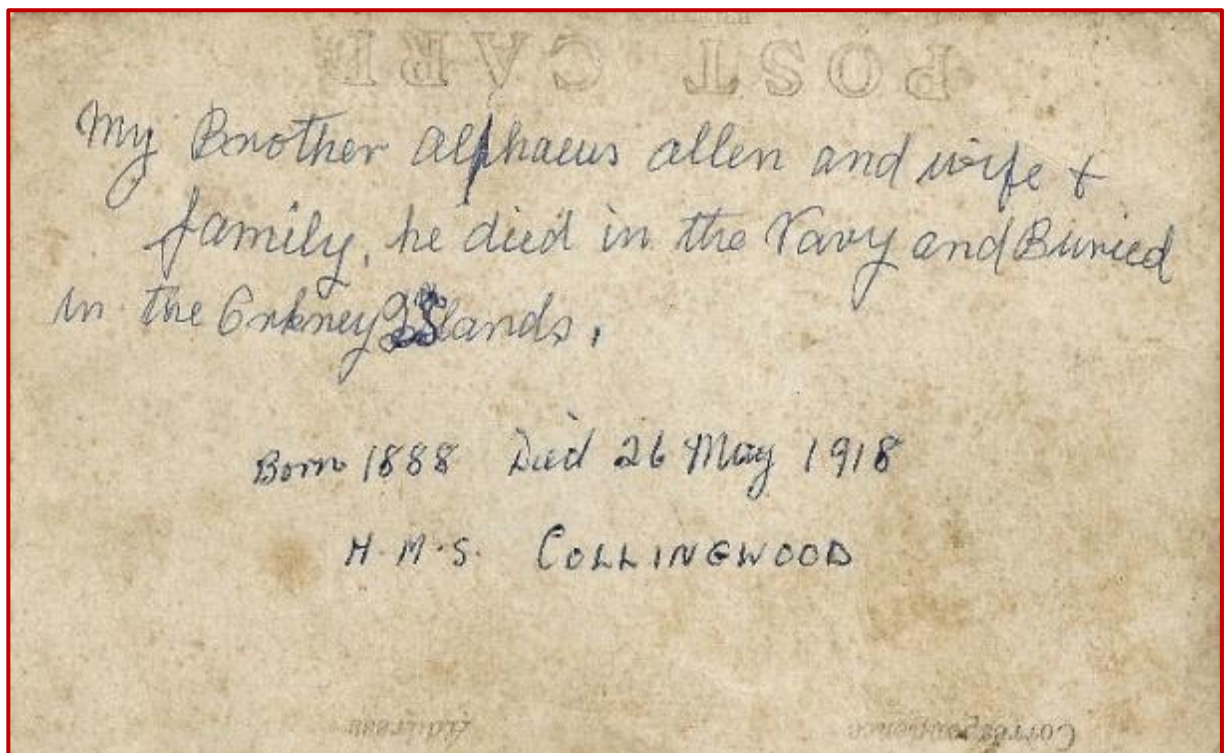 POST CARD
My Brother alphaeus allen and wife +
family, he died in the Navy and Buried
in the Orkney ISlands.
Born 1888 Died 26 May 1918
H.M.S. COLLINGWOOD
Address
Correspondence